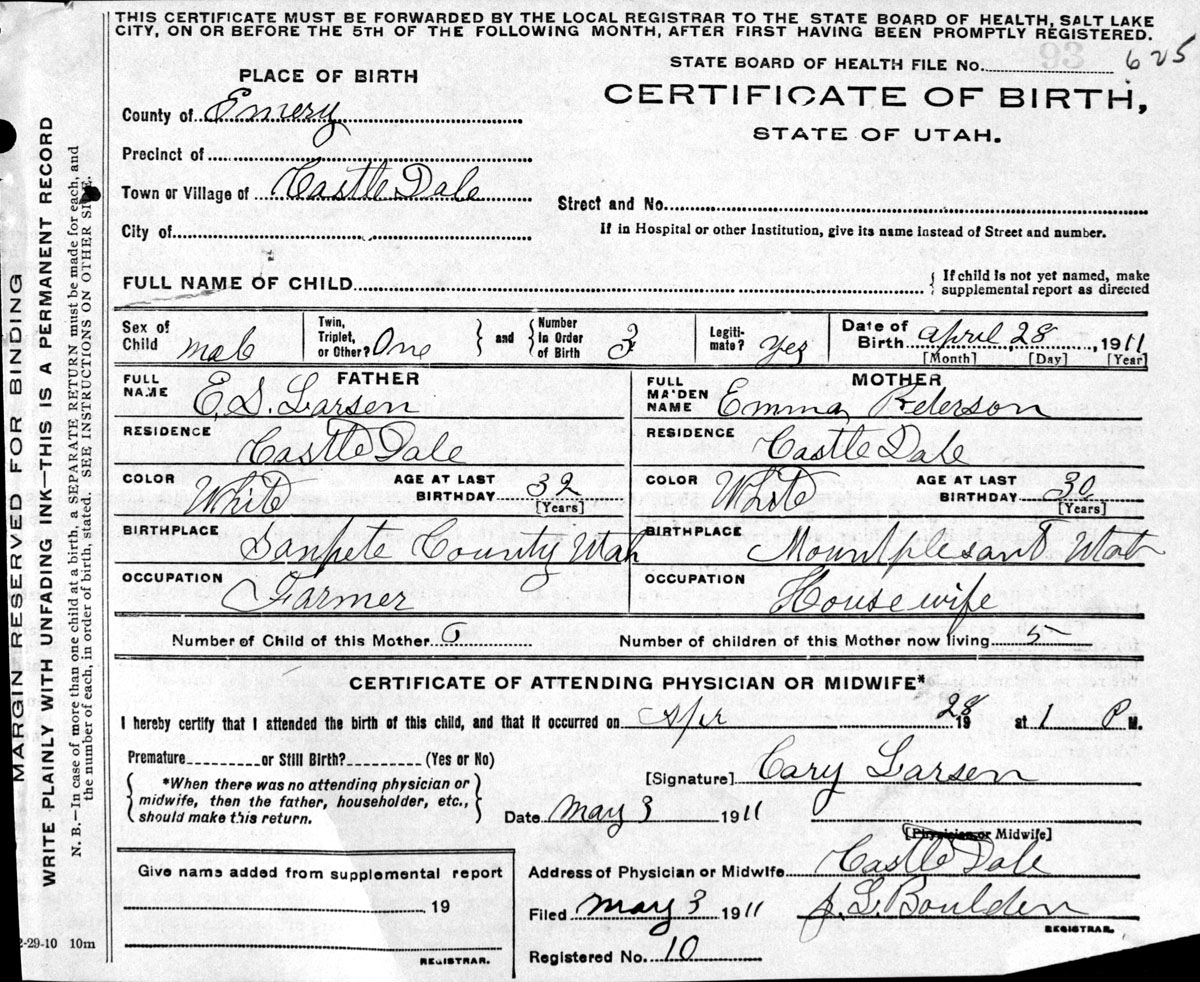 THIS CERTIFICATE MUST BE FORWARDED BY THE LOCAL REGISTRAR TO THE STATE BOARD OF HEALTH, SALT LAKE
CITY, ON OR BEFORE THE 5TH OF THE FOLLOWING MONTH, AFTER FIRST HAVING BEEN PROMPTLY REGISTERED.
93
STATE BOARD OF HEALTH FILE No. 625
PLACE OF BIRTH
CERTIFICATE OF BIRTH,
STATE OF UTAH.
County of Emery
Precinct of
Town or Village of Castle Dale
Street and No.
City of
If in Hospital or other Institution, give its name instead of Street and number.
FULL NAME OF CHILD
{ If child is not yet named, make
supplemental report as directed
Sex of
Child male
Twin,
Triplet,
or Other? One
} and {
Number
In Order
of Birth 3
Legiti-
mate? Yes
Date of
Birth April 28, 1911
[Month] [Day] [Year]
FATHER
FULL
NAME E. S. Larsen
MOTHER
FULL
MAIDEN
NAME Emma Peterson
RESIDENCE Castle Dale
RESIDENCE Castle Dale
COLOR White
AGE AT LAST
BIRTHDAY 32
[Years]
COLOR White
AGE AT LAST
BIRTHDAY 30
[Years]
BIRTHPLACE Sanpete County Utah
BIRTHPLACE Mountplesant Utah
OCCUPATION Farmer
OCCUPATION House wife
Number of Child of this Mother 6
Number of children of this Mother now living 5
CERTIFICATE OF ATTENDING PHYSICIAN OR MIDWIFE*
I hereby certify that I attended the birth of this child, and that it occurred on Apr 28 19 at 1 P M.
Premature or Still Birth? (Yes or No)
{ *When there was no attending physician or
midwife, then the father, householder, etc.,
should make this return. }
[Signature] Cary Larsen
Date May 3 1911
[Physician or Midwife]
Give name added from supplemental report
19
REGISTRAR.
Address of Physician or Midwife Castle Dale
Filed May 3 1911 J. L. Boulden
REGISTRAR.
Registered No. 10
2-29-10 10m
MARGIN RESERVED FOR BINDING
WRITE PLAINLY WITH UNFADING INK—THIS IS A PERMANENT RECORD
N. B.—In case of more than one child at a birth, a SEPARATE RETURN must be made for each, and
the number of each, in order of birth, stated. SEE INSTRUCTIONS ON OTHER SIDE.